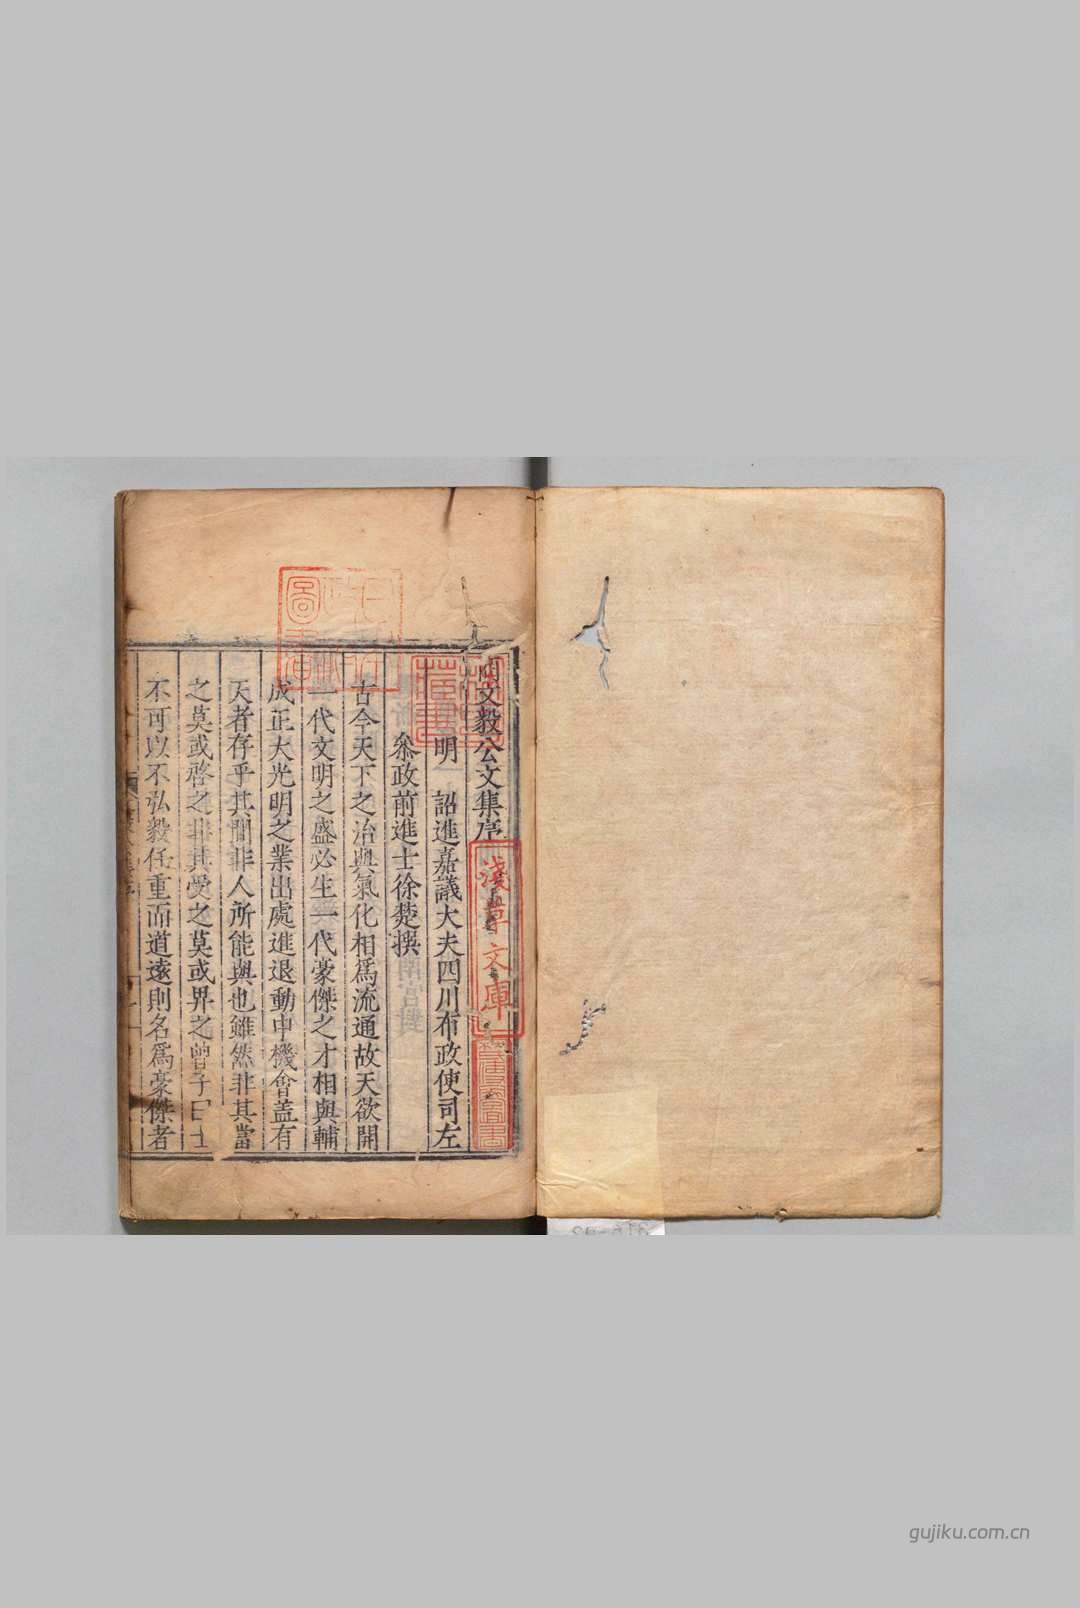 文毅公文集序
明　詔進嘉議大夫四川布政使司左
叅政前進士徐楚撰
古今天下之治與氣化相爲流通故天欲開
一代文明之盛必生一代豪傑之才相與輔
成正大光明之業出處進退動中機會盖有
天者存乎其間非人所能與也雖然非其當
之莫或啓之非其受之莫或畀之曾子曰士
不可以不弘毅任重而道遠則名爲豪傑者
淺草文庫
圖書
gujiku.com.cn